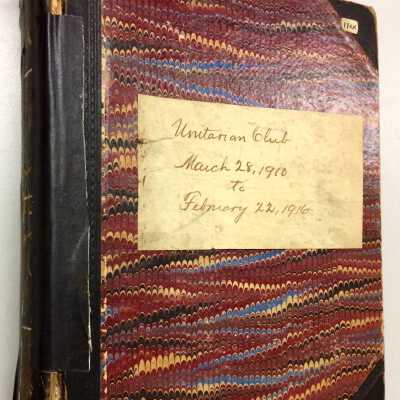 Unitarian Club
March 28, 1910
to
February 22, 1916